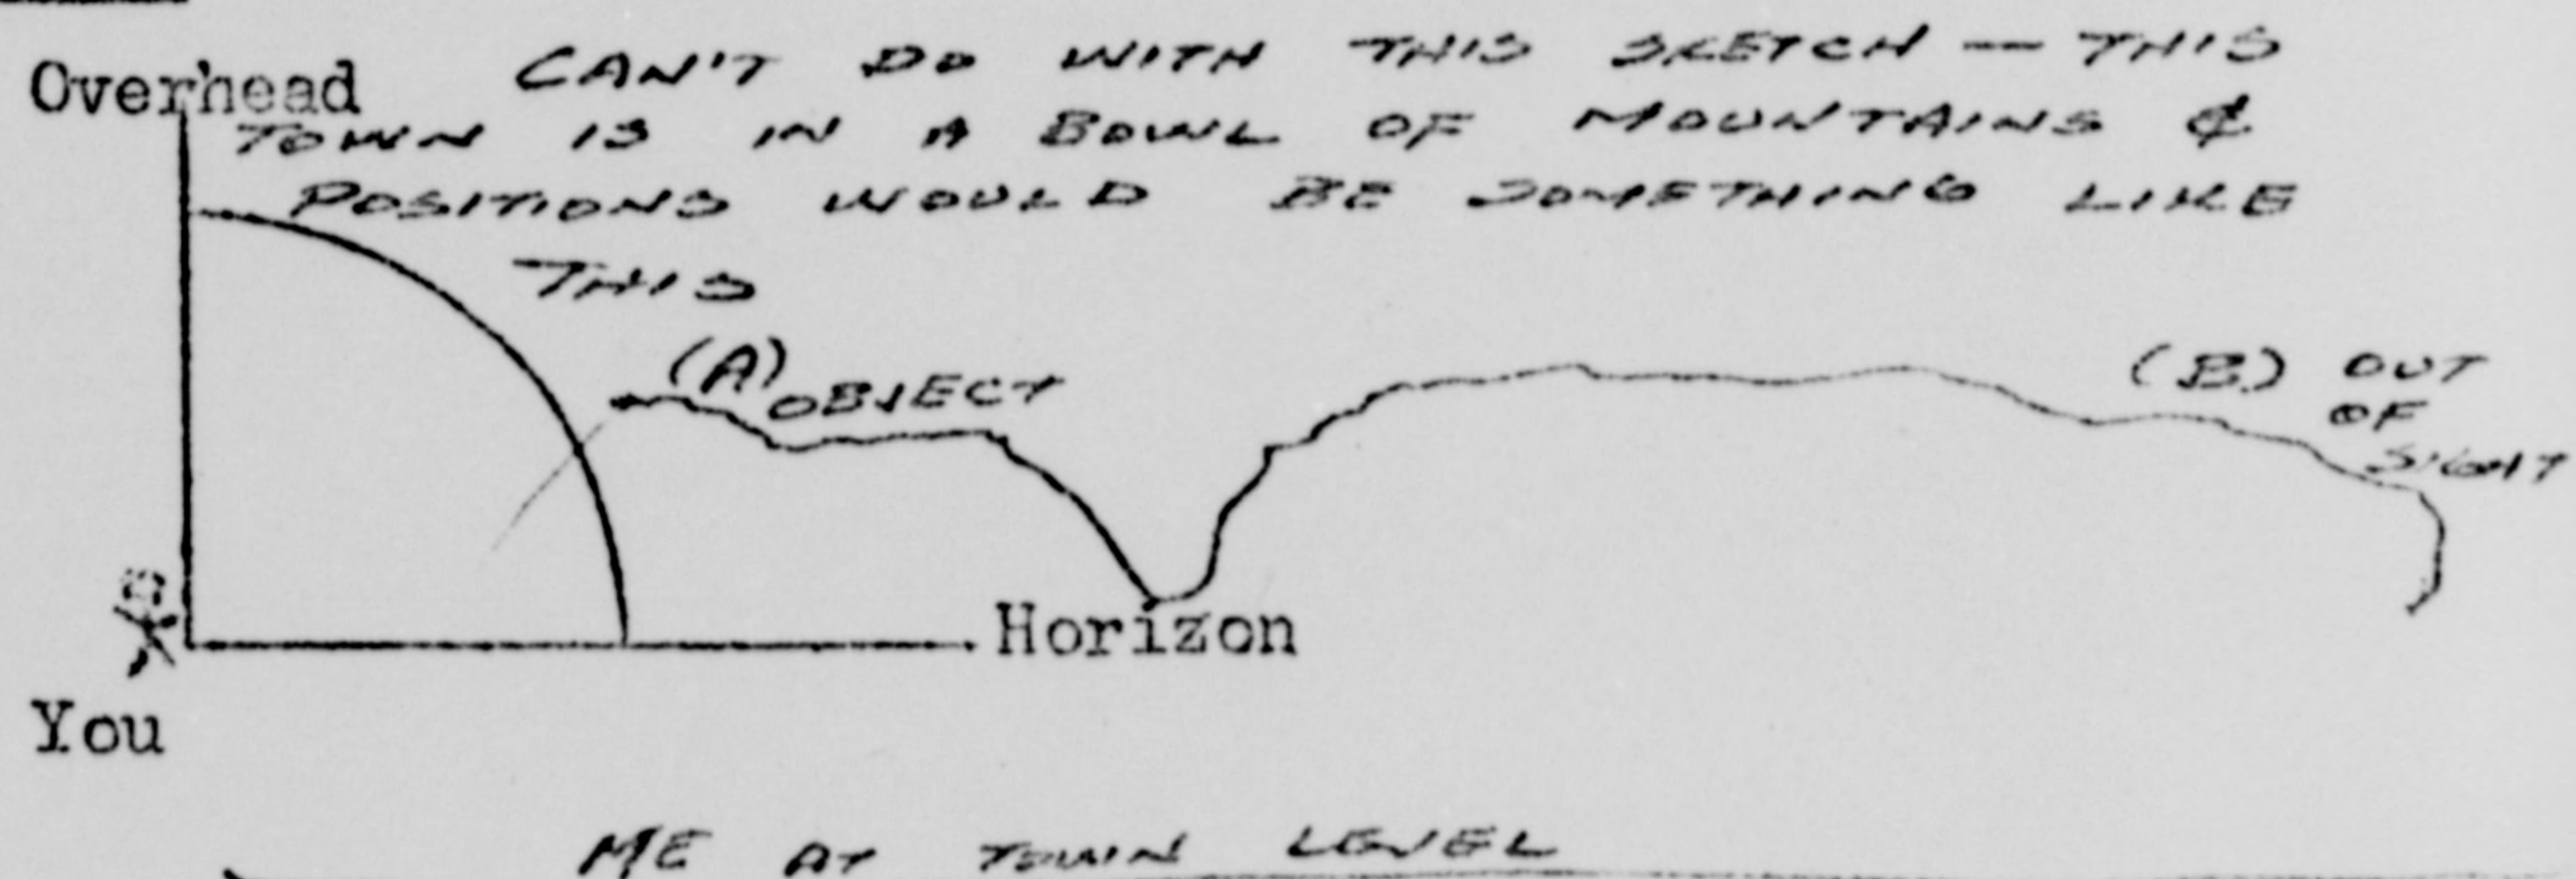 Overhead
CAN'T DO WITH THIS SKETCH — THIS
TOWN IS IN A BOWL OF MOUNTAINS &
POSITIONS WOULD BE SOMETHING LIKE
THIS
(A) OBJECT
(B) OUT
OF
SIGHT
Horizon
You
ME AT TOWN LEVEL